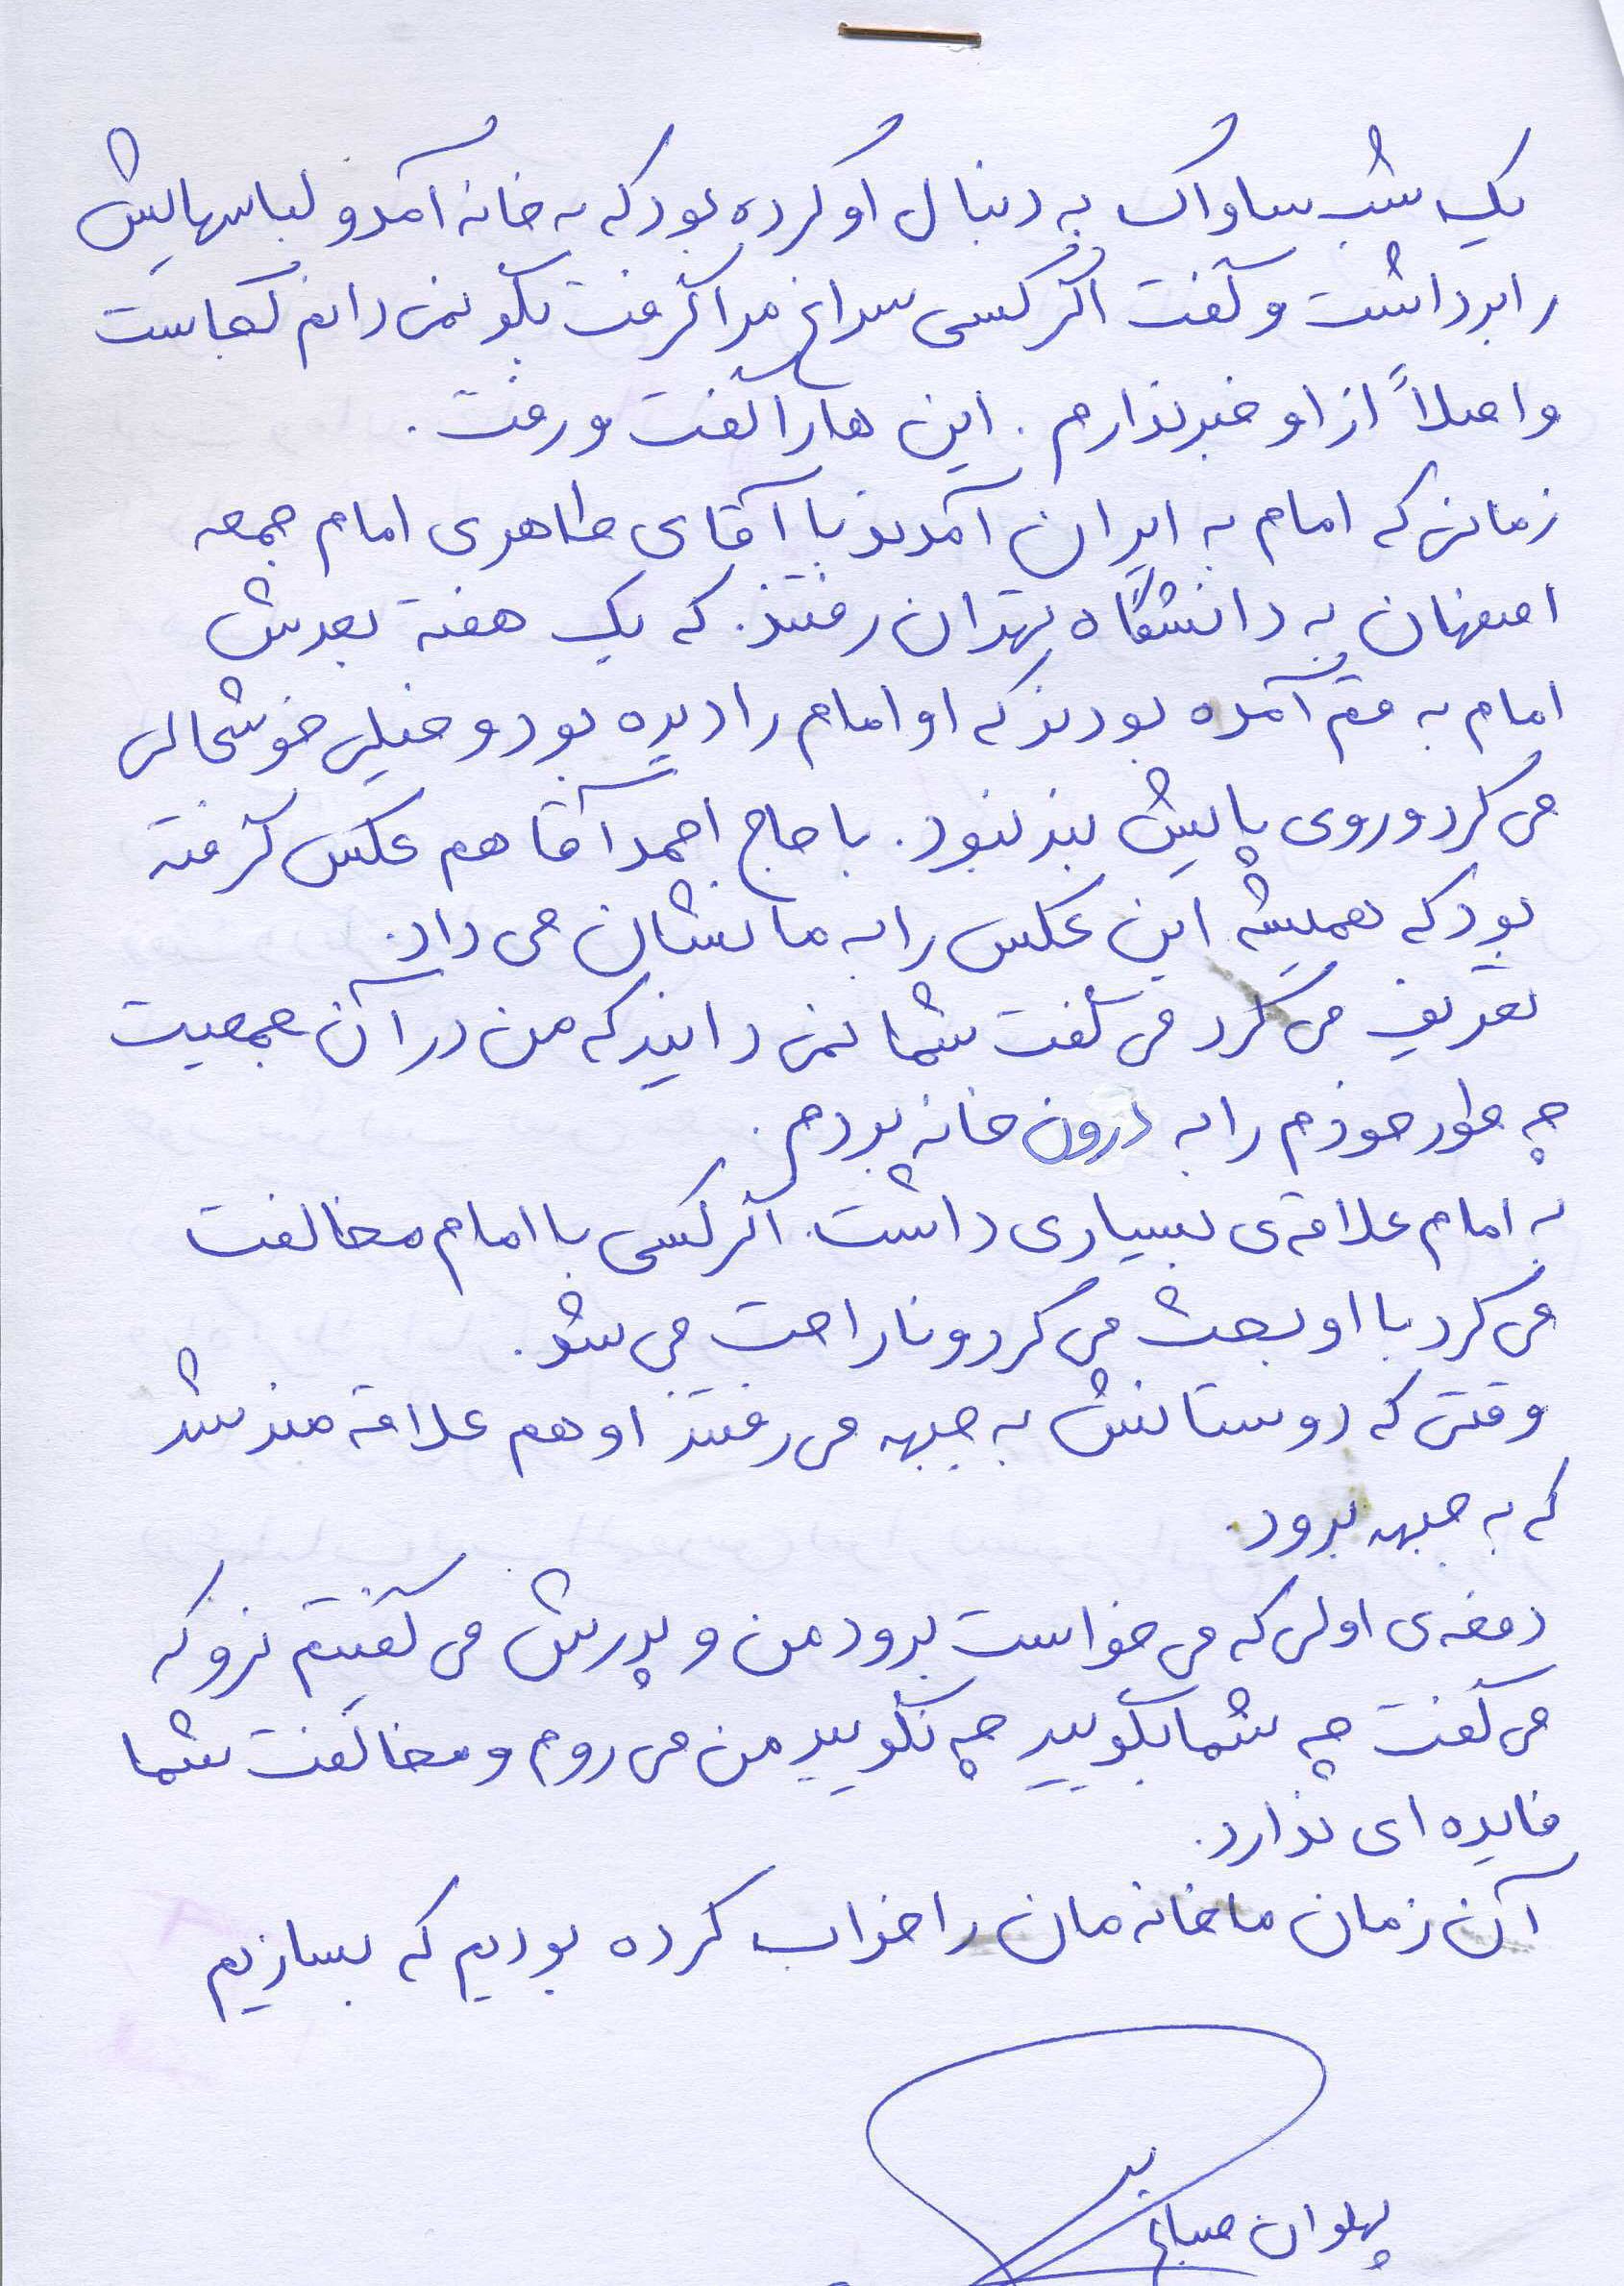 یک شب ساواک به دنبال او کرده بود که به خانه آمد و لباسهایش
را برداشت و گفت اگر کسی سراغ مرا گرفت بگو نمی دانم کجاست
و اصلاً از او خبر ندارم. این ها را گفت و رفت.
زمانی که امام به ایران آمدند با آقای طاهری امام جمعه
اصفهان به دانشگاه تهران رفتند. که یک هفته بعدش
امام به قم آمده بودند که او امام را دیده بود و خیلی خوشحالی
می کرد و روی پایش بند نبود. با حاج احمد آقا هم عکس گرفته
بود که همیشه این عکس را به ما نشان می داد.
تعریف می کرد می گفت شما نمی دانید که من در آن جمعیت
چه طور خودم را به درون خانه بردم.
به امام علاقه ی بسیاری داشت. اگر کسی با امام مخالفت
می کرد با او بحث می کرد و ناراحت می شد.
وقتی که دوستانش به جبهه می رفتند او هم علاقه مند شد
که به جبهه برود.
دفعه ی اولی که می خواست برود من و پدرش می گفتیم نرو که
می گفت چه شما بگویید چه نگویید من می روم و مخالفت شما
فایده ای ندارد.
آن زمان ما خانه مان را خراب کرده بودیم که بسازیم
پهلوان